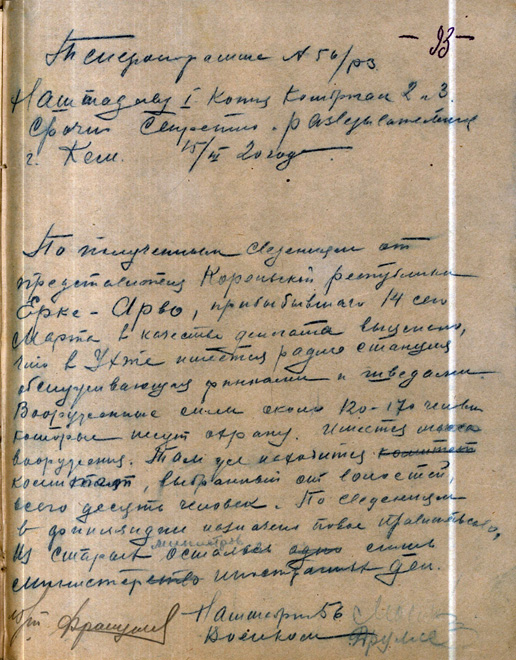 - 93
Телефонограмма № 56/рз
Наштадиву I Копия Комбригам 2 и 3.
Срочно Секретно. разведывательная
г. Кемь. 15/III 20 года
По полученным сведениям от
представителя Корельской республики
Ерке-Арво, прибывшаго 14 сего
Марта в качестве делегата выяснено,
что в Ухте имеется радио станция
обслуживающая финнами и шведами.
Вооруженные силы около 120-170 человек
которые несут охрану. Имеется
вооружения. Там же находится комитет
комитет, выбранный от волостей,
всего десять человек. По сведениям
в финляндии назначено новое правительство,
из старых министров осталось одно лишь
министерство иностранных дел.
Наштабриг 56
Военком